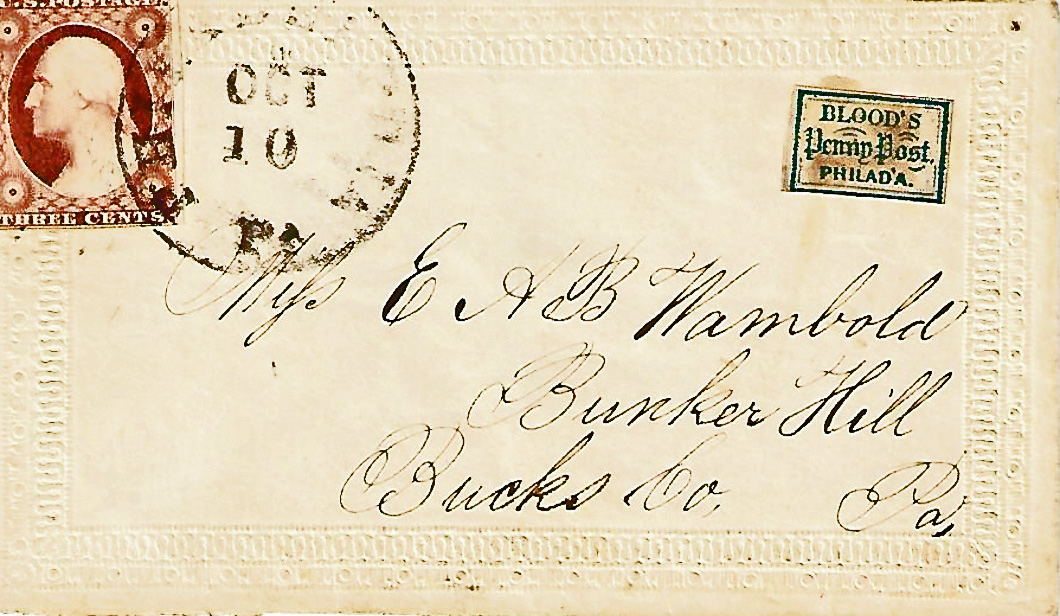 U.S. POSTAGE.
THREE CENTS.
OCT
10
Pa
BLOOD'S
Penny Post.
PHILAD'A.
Miss E A B Wambold
Bunker Hill
Bucks Co. Pa,